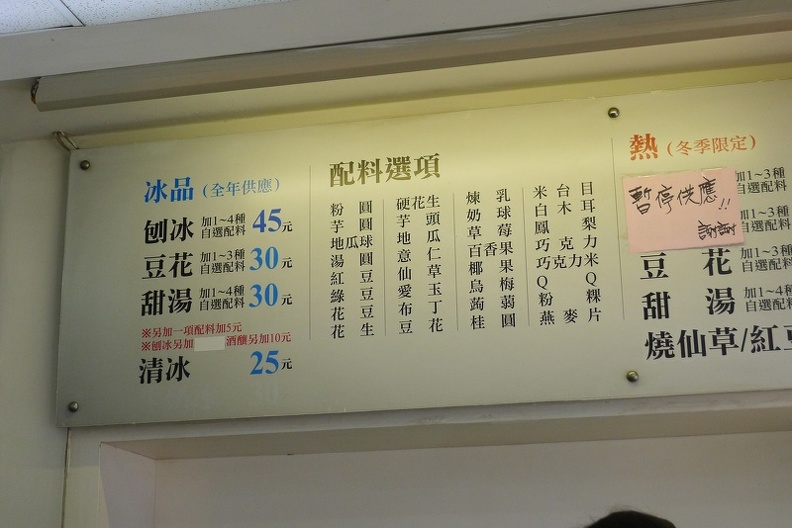 冰品（全年供應）
刨冰 加1~4種自選配料 45元
豆花 加1~3種自選配料 30元
甜湯 加1~4種自選配料 30元
※另加一項配料加5元
※刨冰另加 酒釀另加10元
清冰 25元
配料選項
粉圓
芋圓
地瓜球
湯圓
紅豆
綠豆
花豆
花生
硬花生
芋頭
地瓜
意仁
仙草
愛玉
布丁
豆花
煉乳
奶球
草莓
百香果
椰果
烏梅
蒟蒻
桂圓
米台目
白木耳
鳳梨
巧克力
巧克力米
QQ
粉粿
燕麥片
熱（冬季限定）
暫停供應!!
謝謝
加1~3種
自選配料
豆花 加1~3種自選配料
甜湯 加1~4種自選配料
燒仙草/紅豆